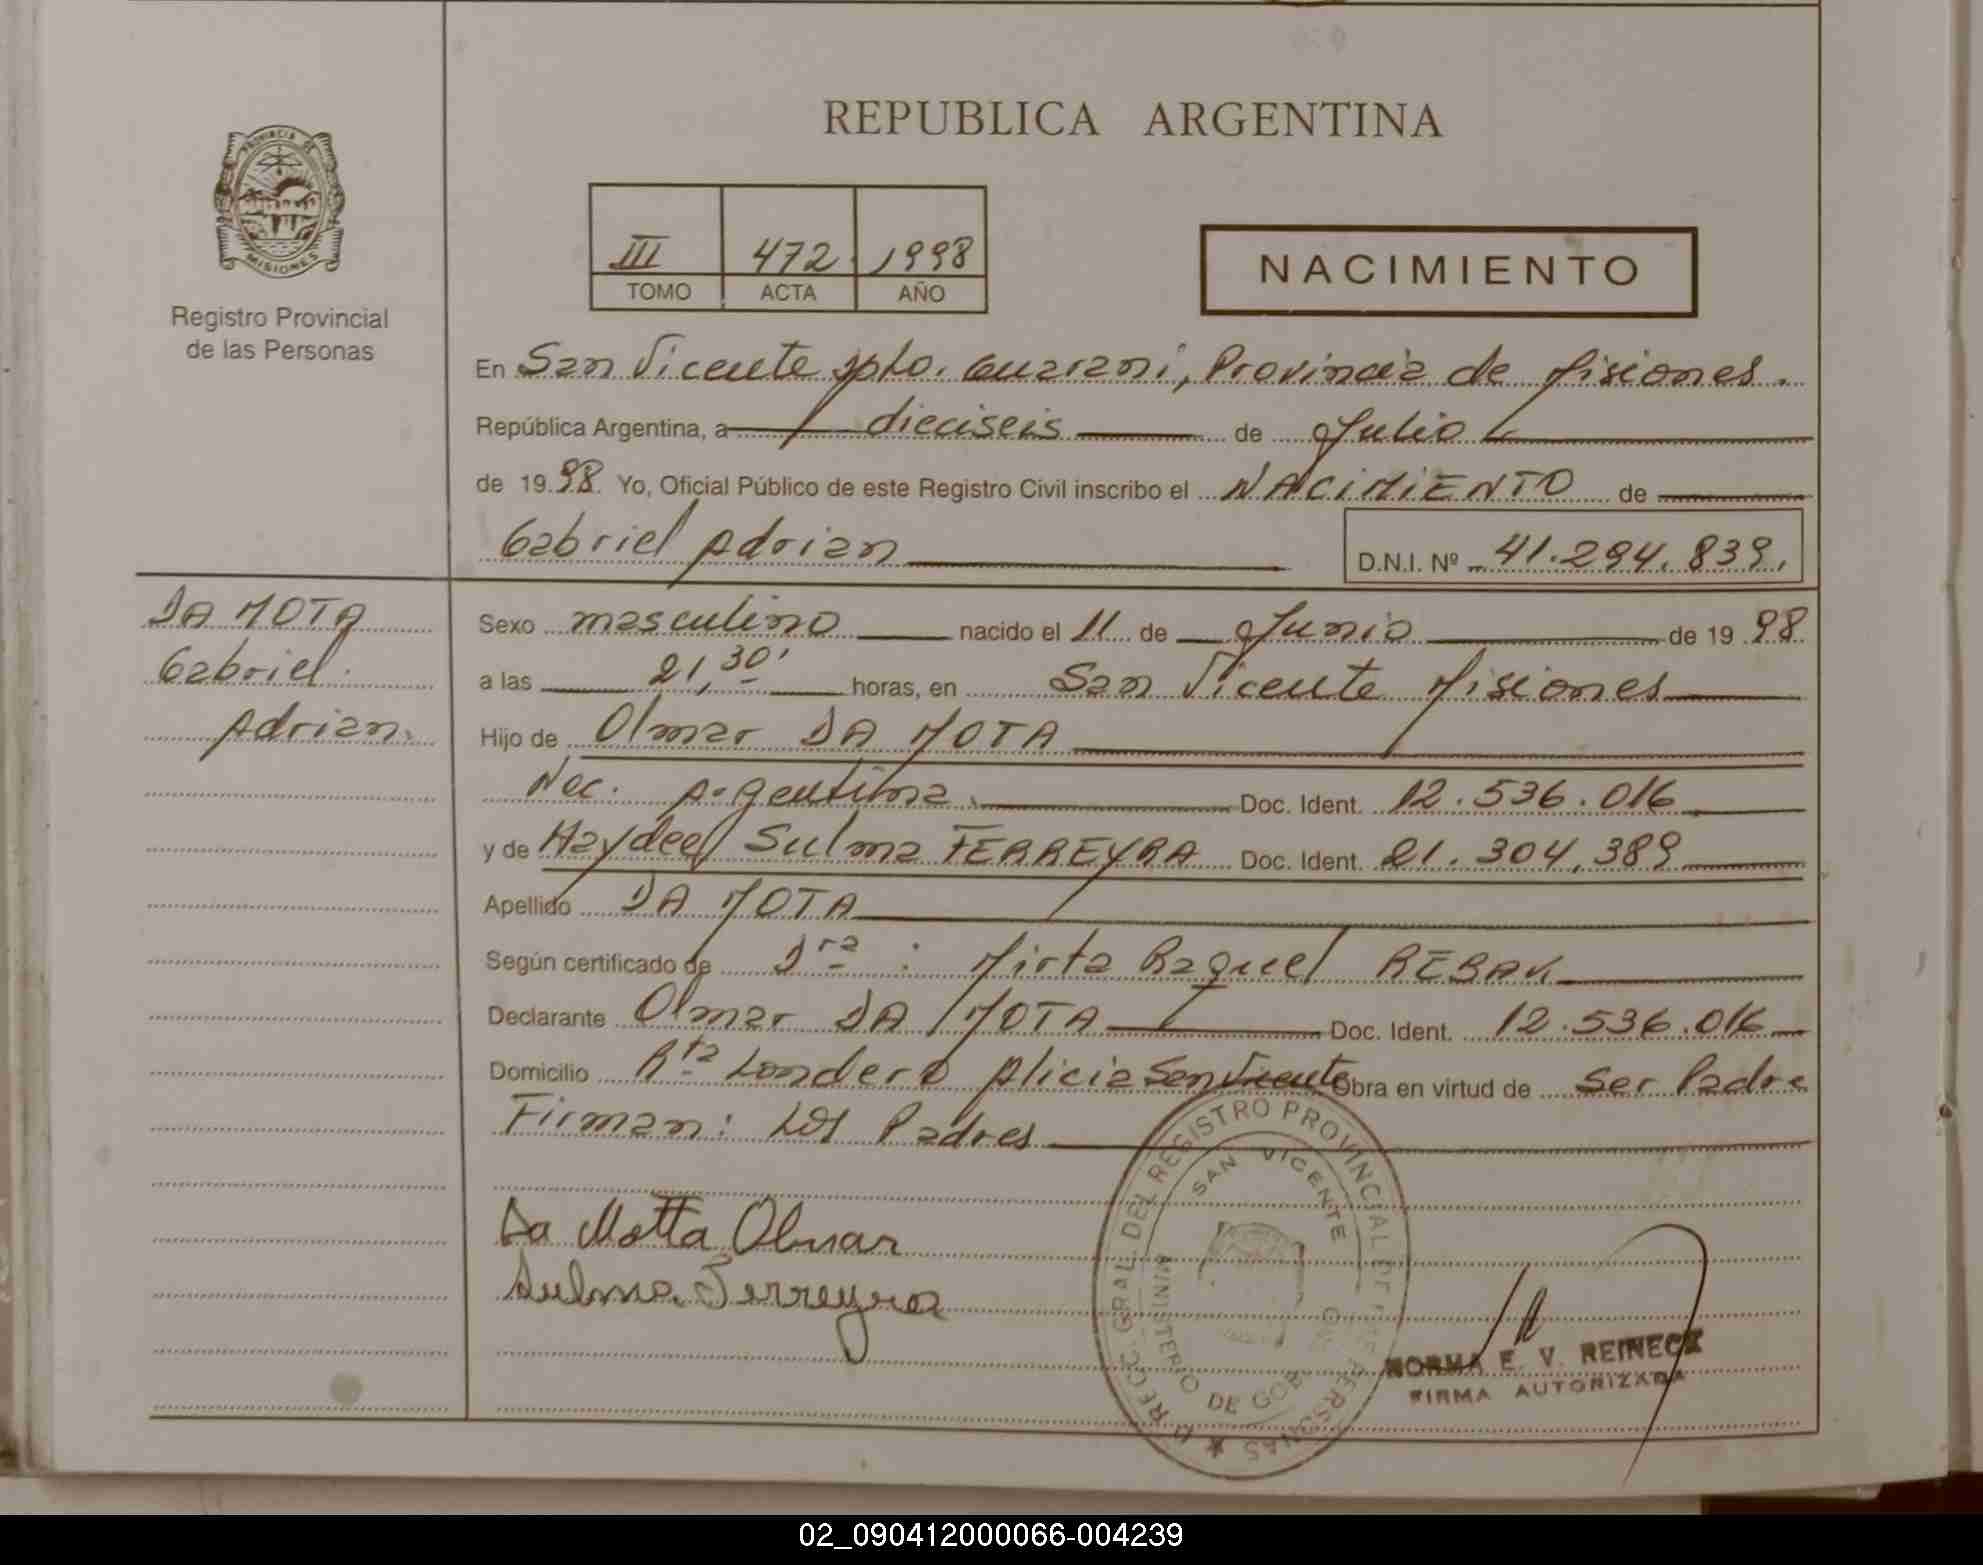 REPUBLICA ARGENTINA
PROVINCIA DE
MISIONES
Registro Provincial
de las Personas
III 472 1998
TOMO ACTA AÑO
NACIMIENTO
En San Vicente Dpto. Guarani, Provincia de Misiones.
República Argentina, a dieciseis de Julio
de 1998. Yo, Oficial Público de este Registro Civil inscribo el NACIMIENTO de
Gabriel Adrian D.N.I. Nº 41.294.839.
DA MOTA
Gabriel
Adrian.
Sexo masculino nacido el 11 de Junio de 19 98
a las 21,30' horas, en San Vicente Misiones
Hijo de Olmar DA MOTA
Nac. Argentina. Doc. Ident. 12.536.016
y de Haydee Sulma FERREYRA Doc. Ident. 21.304.389
Apellido DA MOTA
Según certificado de Dra : Mirta Raquel
Declarante Olmar DA MOTA Doc. Ident. 12.536.016
Domicilio Rta Londero Alicia San Vicente Obra en virtud de Ser Padre
Firman: Los Padres
Da Motta Olmar
Sulma Ferreyra
DIRECC. GRAL. DEL REGISTRO PROVINCIAL DE LAS PERSONAS
SAN VICENTE
MINISTERIO DE GOB
NORMA E. V. REINECK
FIRMA AUTORIZADA
02_090412000066-004239